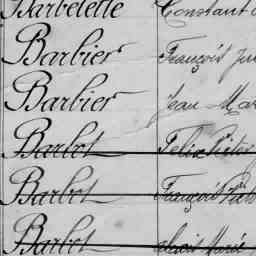 Barbelette Constant
Barbier François
Barbier Jean Mar
Barbot Felix Victor
Barbot François Vict
Barbot Marie